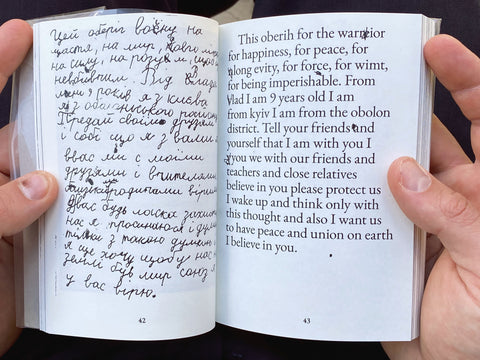 Цей оберіг воїну на
щастя, на мир, довго
на силу, на розум, щоб
невбивчим. Від Влада
мені 9 років я з києва
я з оболонського району
Передай своїм друзям
і собі що я з вами і
ввас ми с моїми
друзями і вчителями
близкіродичами вірим
Двас будь ласка захист
нас я просинаюся і дума
тільки з такою думаю і
я ще хочу щобу нас на
землі був мир союз я
у вас вірю.
42
This oberih for the warrior
for happiness, for peace, for
along evity, for force, for wimt,
for being imperishable. From
Vlad I am 9 years old I am
from kyiv I am from the obolon
district. Tell your friends and
yourself that I am with you I
you we with our friends and
teachers and close relatives
believe in you please protect us
I wake up and think only with
this thought and also I want us
to have peace and union on earth
I believe in you.
43